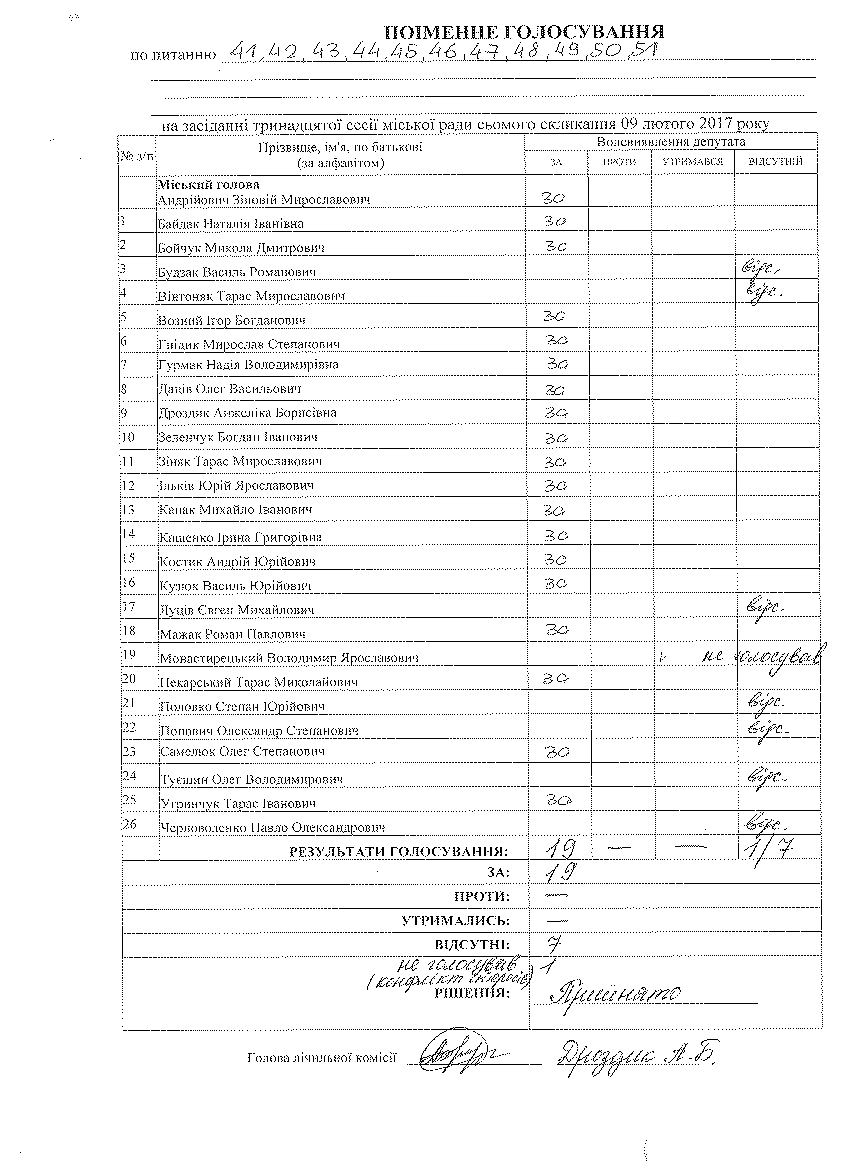 ПОІМЕННЕ ГОЛОСУВАННЯ
по питанню 41, 42, 43, 44, 45, 46, 47, 48, 49, 50, 51
на засіданні тринадцятої сесії міської ради сьомого скликання 09 лютого 2017 року
№ з/п Прізвище, ім'я, по батькові (за алфавітом) Волевиявлення депутата
ЗА ПРОТИ УТРИМАВСЯ ВІДСУТНІЙ
Міський голова
Андрійович Зіновій Мирославович ЗА
1 Байдак Наталія Іванівна ЗА
2 Бойчук Микола Дмитрович ЗА
3 Будзак Василь Романович відс.
4 Вінтоняк Тарас Мирославович відс.
5 Возний Ігор Богданович ЗА
6 Гнідик Мирослав Степанович ЗА
7 Гурмак Надія Володимирівна ЗА
8 Даців Олег Васильович ЗА
9 Дроздик Анжеліка Борисівна ЗА
10 Зеленчук Богдан Іванович ЗА
11 Зіняк Тарас Мирославович ЗА
12 Ільків Юрій Ярославович ЗА
13 Капак Михайло Іванович ЗА
14 Кащенко Ірина Григорівна ЗА
15 Костик Андрій Юрійович ЗА
16 Кузюк Василь Юрійович ЗА
17 Луців Євген Михайлович відс.
18 Мажак Роман Павлович ЗА
19 Монастирецький Володимир Ярославович не голосував
20 Пекарський Тарас Миколайович ЗА
21 Половко Степан Юрійович відс.
22 Попович Олександр Степанович відс.
23 Самелюк Олег Степанович ЗА
24 Туєшин Олег Володимирович відс.
25 Угринчук Тарас Іванович ЗА
26 Черноволенко Павло Олександрович відс.
РЕЗУЛЬТАТИ ГОЛОСУВАННЯ: 19 — — 1/7
ЗА: 19
ПРОТИ: —
УТРИМАЛИСЬ: —
ВІДСУТНІ: 7
не голосував 1
(конфлікт інтересів)
РІШЕННЯ: Прийнято
Голова лічильної комісії Дроздик А.Б.